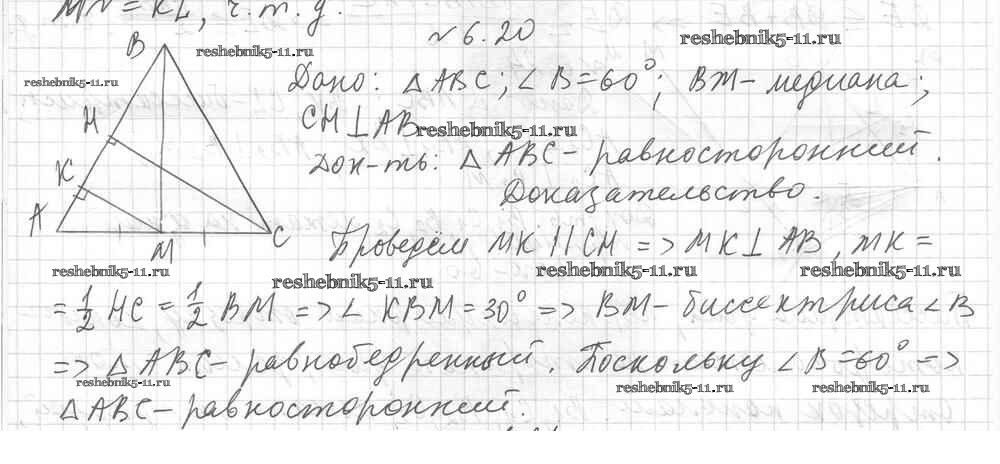 MN = KL, ч.т.д.
№ 6.20
reshebnik5-11.ru
reshebnik5-11.ru
reshebnik5-11.ru
B
H
K
A
M
C
Дано: △ ABC; ∠ B = 60°; BM - медиана;
CH ⊥ AB
reshebnik5-11.ru
Док-ть: △ ABC - равносторонний.
Доказательство.
Проведём MK || CH => MK ⊥ AB, MK =
reshebnik5-11.ru
reshebnik5-11.ru
reshebnik5-11.ru
reshebnik5-11.ru
= 1/2 HC = 1/2 BM => ∠ KBM = 30° => BM - биссектриса ∠ B
=> △ ABC - равнобедренный. Поскольку ∠ B = 60° =>
reshebnik5-11.ru
reshebnik5-11.ru
reshebnik5-11.ru
△ ABC - равносторонний.